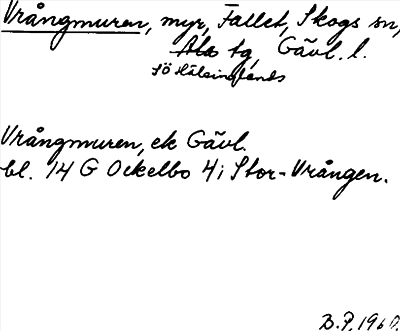 Vrångmuren, myr, Fallet, Skogs sn,
Ala tg, Gävl. l.
SÖ Hälsinglands
Vrångmuren, ek Gävl.
bl. 14 G Ockelbo 4i Stor-Vrången.
B.P. 1960.